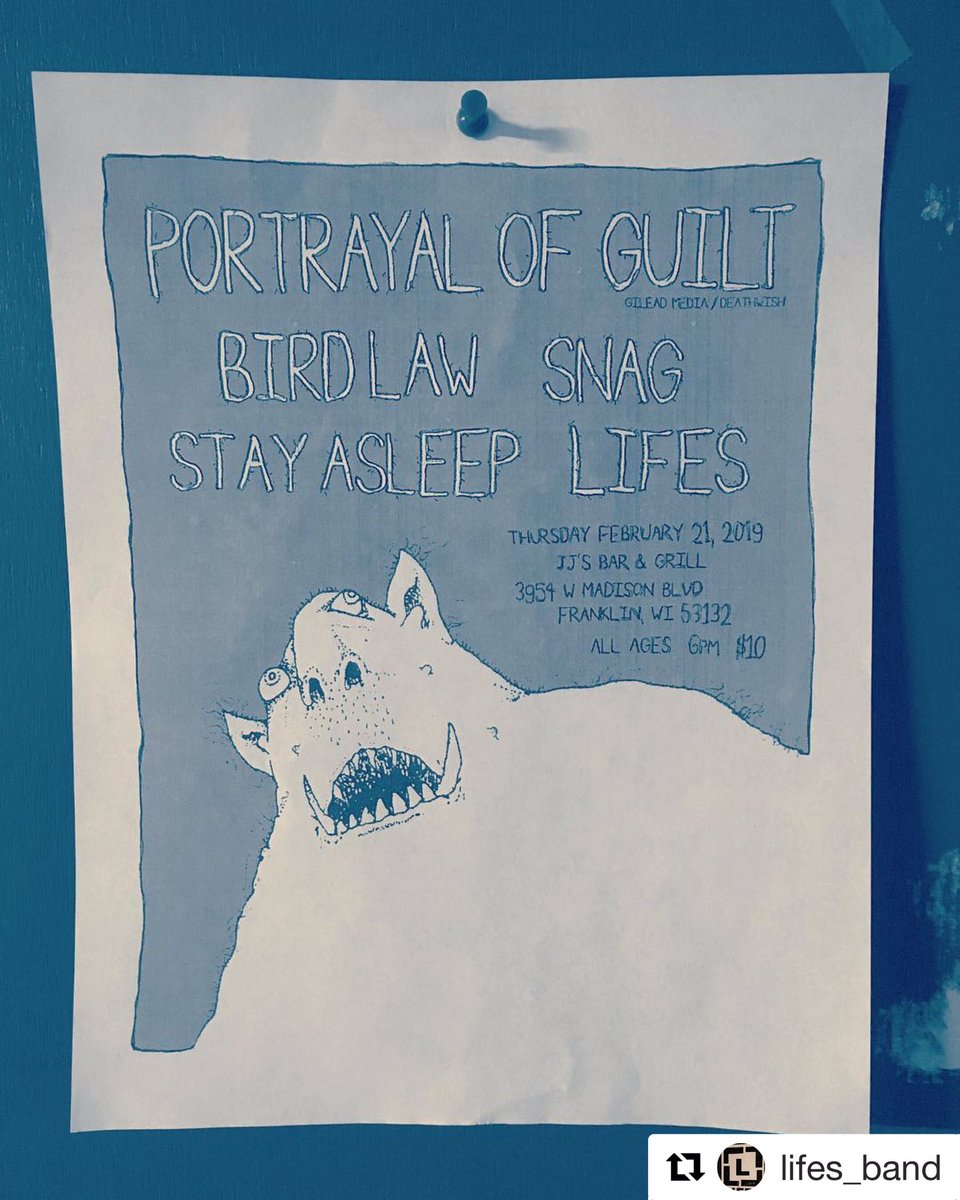 PORTRAYAL OF GUILT
GILEAD MEDIA/DEATHWISH
BIRD LAW SNAG
STAY ASLEEP LIFES
THURSDAY FEBRUARY 21, 2019
JJ'S BAR & GRILL
3954 W MADISON BLVD
FRANKLIN, WI 53132
ALL AGES 6PM $10
L lifes_band